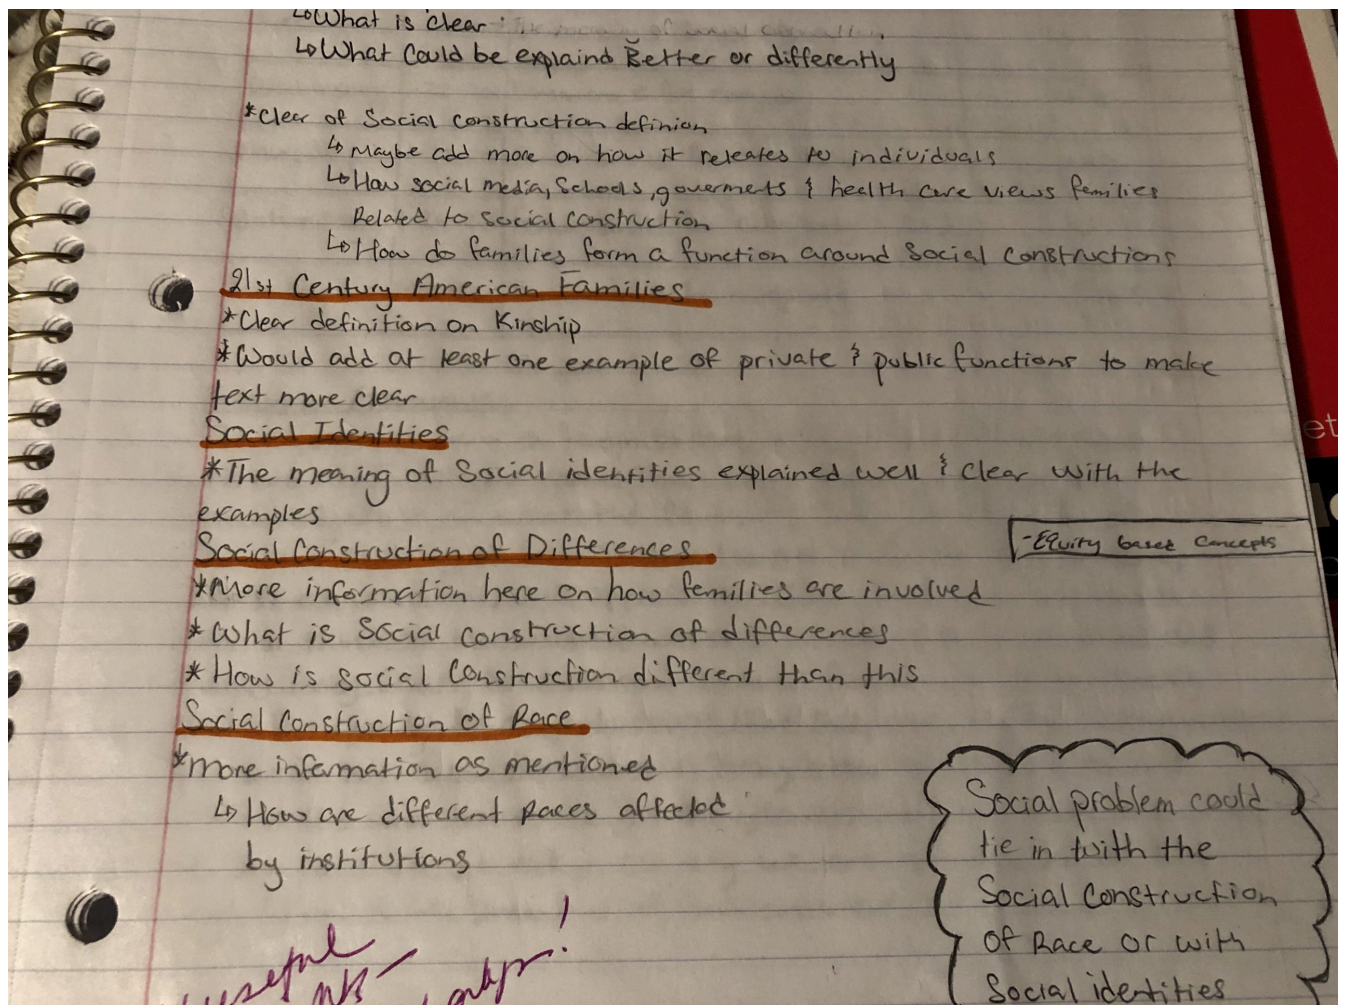 ↳What is clear:
↳What Could be explaind Better or differently
*Clear of Social construction definion
↳ Maybe add more on how it releates to individuals
↳How social media, Schools, goverments & health care views families
Related to Social Construction
↳How do families form a function around Social Constructions
21st Century American Families
*Clear definition on Kinship
*Would add at least one example of private & public functions to make
text more clear
Social Identities
*The meaning of Social identities explained well & clear with the
examples
Social Construction of Differences
-Equity based concepts
*More information here on how families are involved
*What is Social construction of differences
*How is social Construction different than this
Social Construction of Race
*more information as mentioned
↳ How are different Races affected
by institutions
Social problem could
tie in with the
Social Construction
Of Race or with
Social identities
useful
et